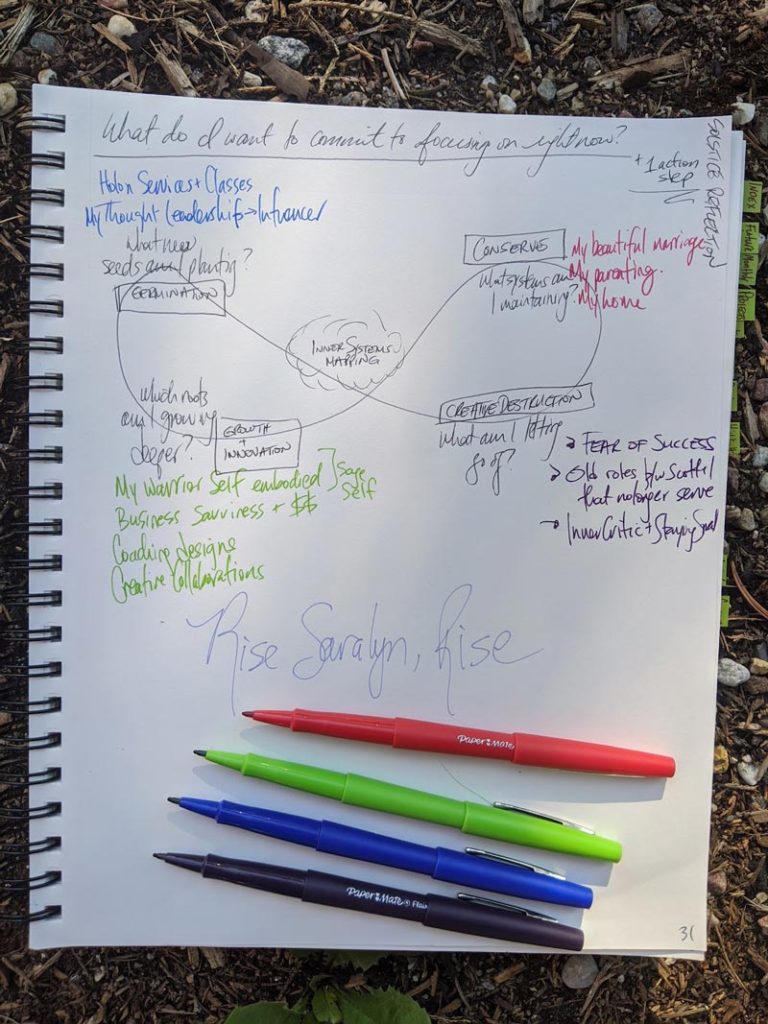 What do I want to commit to focusing on right now?
+ 1 action
step
SOLSTICE REFLECTION
INDEX
Future Monthly
Holon Services + Classes
My Thought Leadership → Influencer
What new
seeds am I planting?
GERMINATION
CONSERVE
What systems am
I maintaining?
My beautiful marriage
My parenting.
My home
INNER SYSTEMS
MAPPING
Which roots
am I growing
deeper?
GROWTH
+
INNOVATION
CREATIVE DESTRUCTION
What am I letting
go of?
→ FEAR OF SUCCESS
→ Old roles b/w Scott + I
that no longer serve
→ Inner Critic + Staying Small
My Warrior Self embodied
Sage
Self
Business Savviness + $$
Coaching designs
Creative Collaborations
Rise Saralyn, Rise
Paper Mate
Paper Mate Flair
31